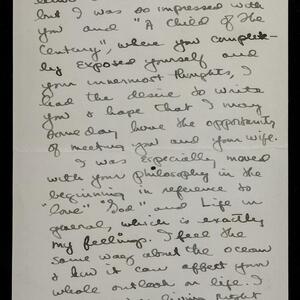 but I was so impressed with
you and "A Child of the
Century", where you complete-
ly exposed yourself and
your innermost thoughts, I
had the desire to write
you & hope that I may
someday have the opportunity
of meeting you and your wife.
I was especially moved
with your philosophy in the
"beginning in reference to
"love" "God" and Life in
general, which is exactly
my feelings. I feel the
same way about the ocean
& how it can affect your
whole outlook on life. I
living right